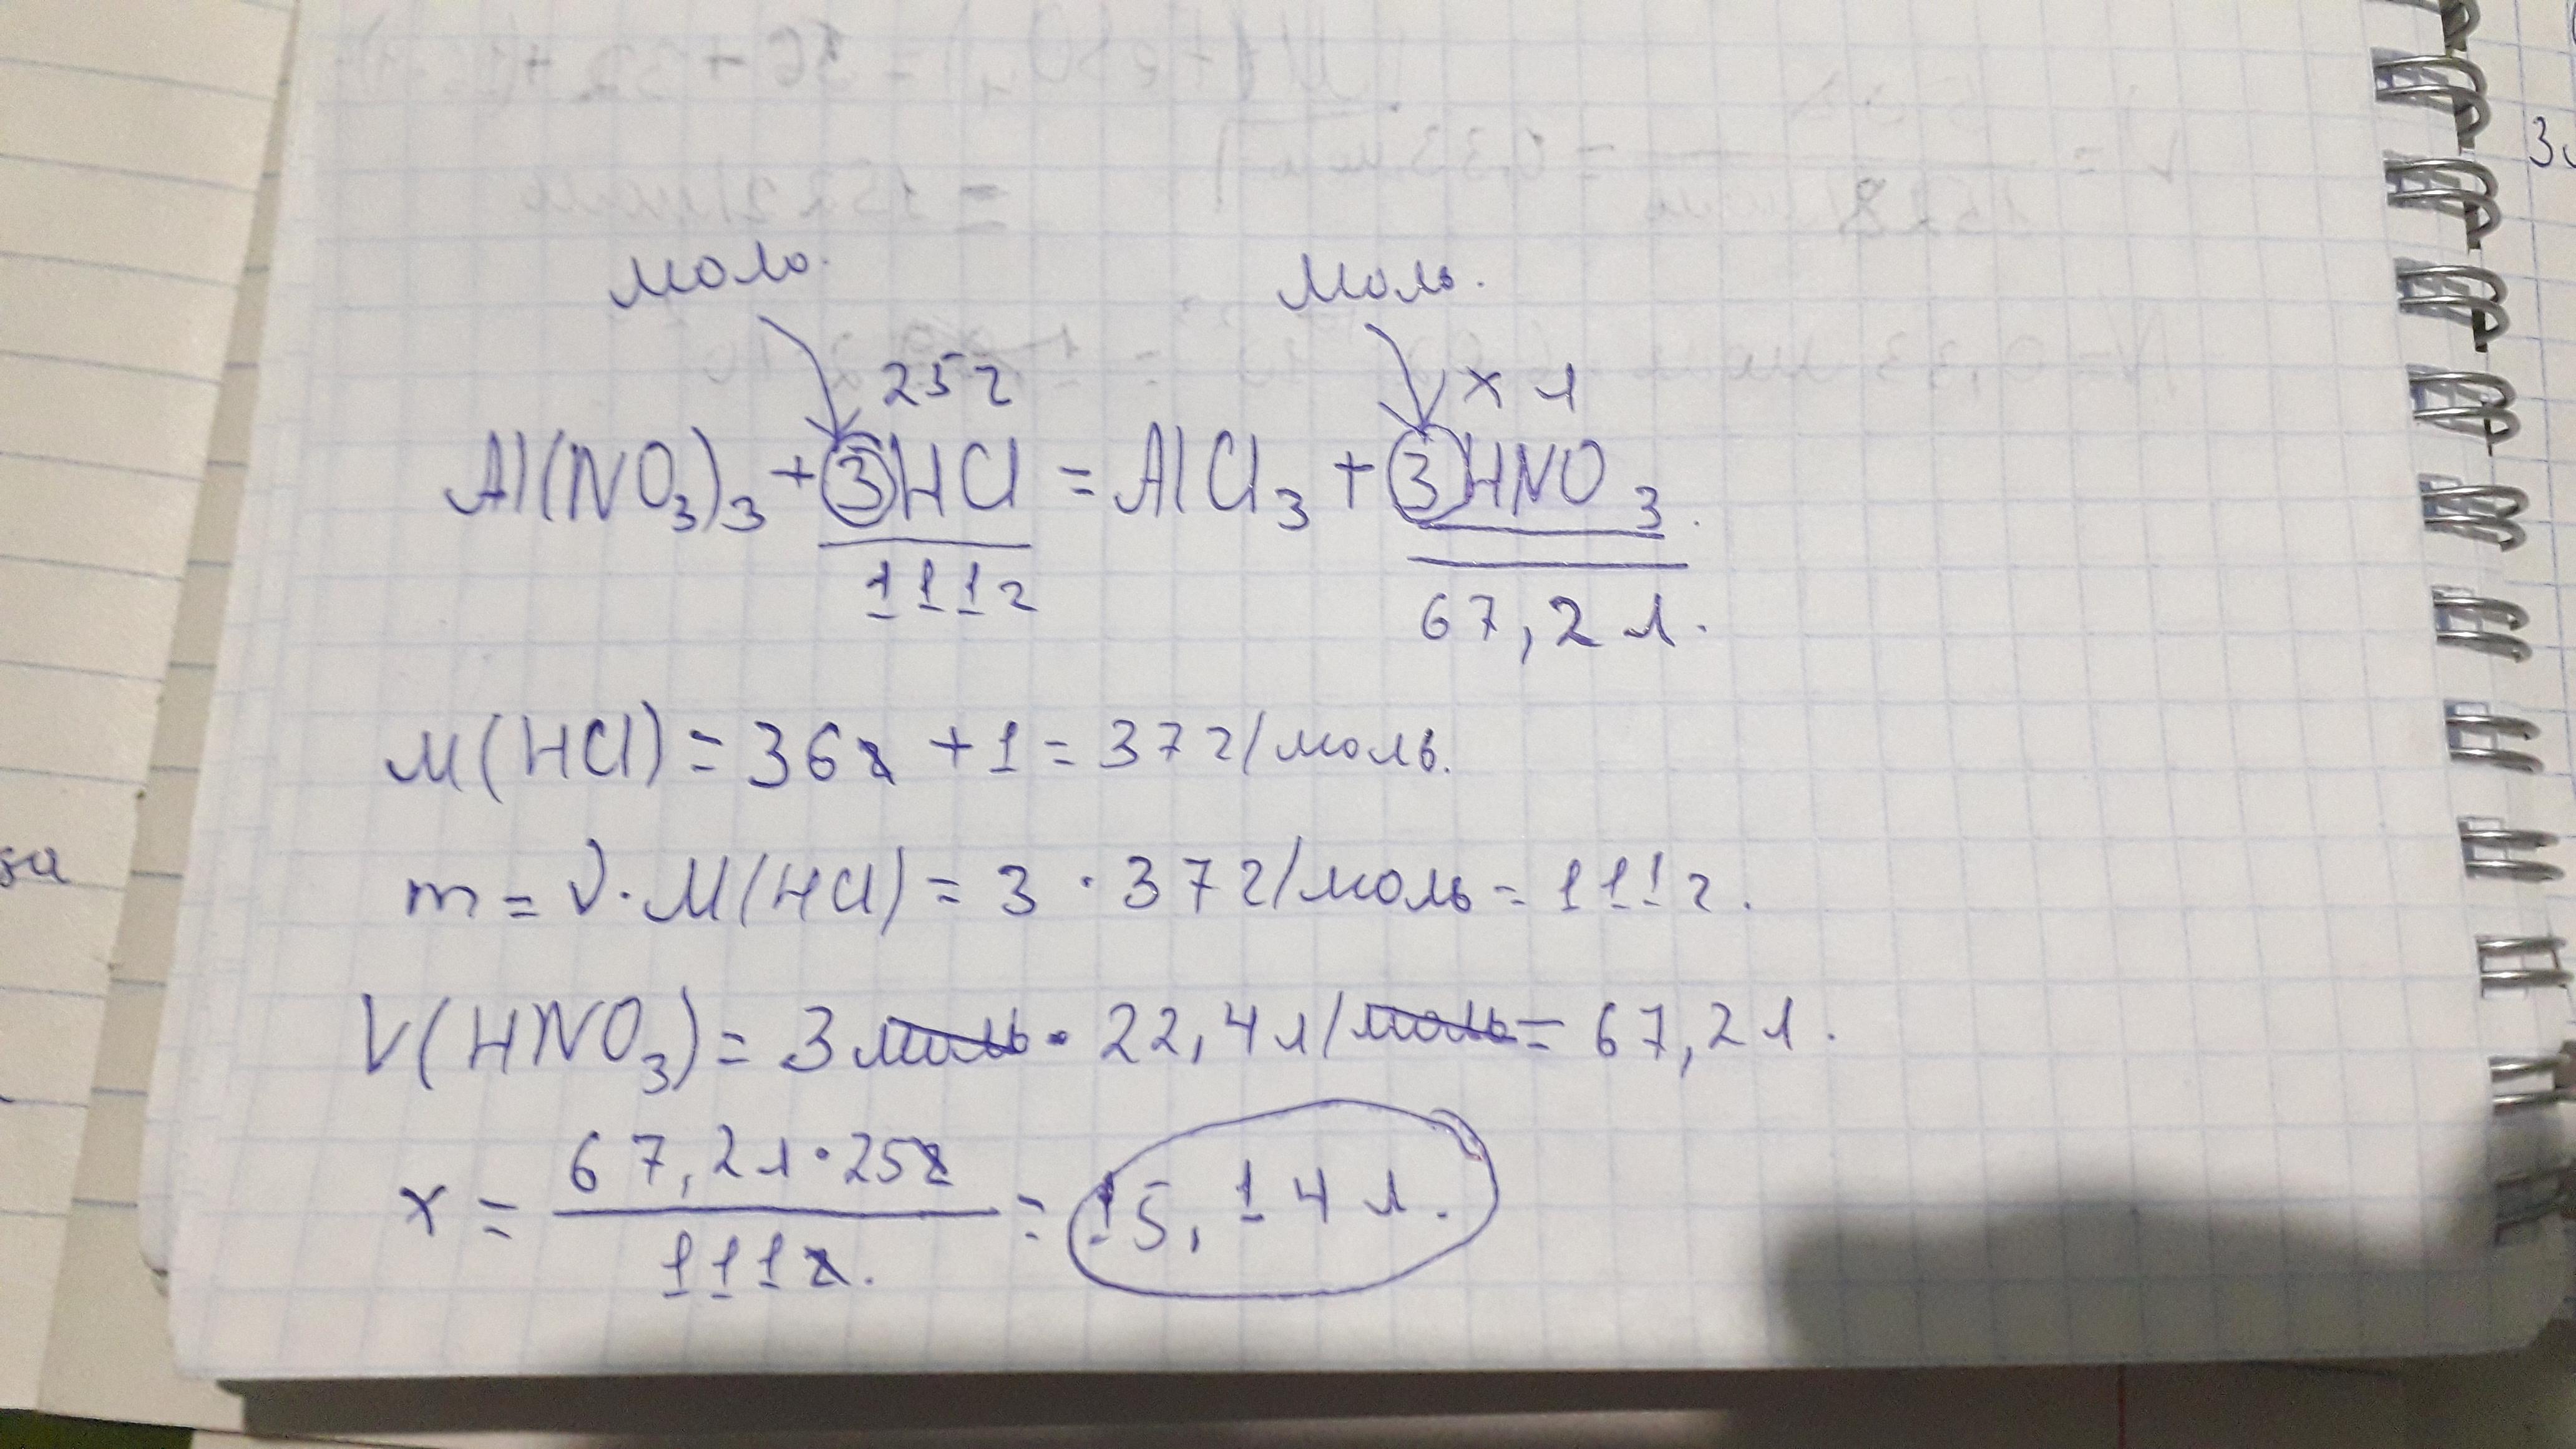 моль. моль.
25г x л
Al(NO₃)₃ + 3HCl = AlCl₃ + 3HNO₃.
111г 67,2 л.
M(HCl) = 36 + 1 = 37 г/моль.
m = ν · M(HCl) = 3 · 37 г/моль = 111 г.
V(HNO₃) = 3 моль · 22,4 л/моль = 67,2 л.
x = 67,2 л · 25г / 111г. = 15,14 л.
за